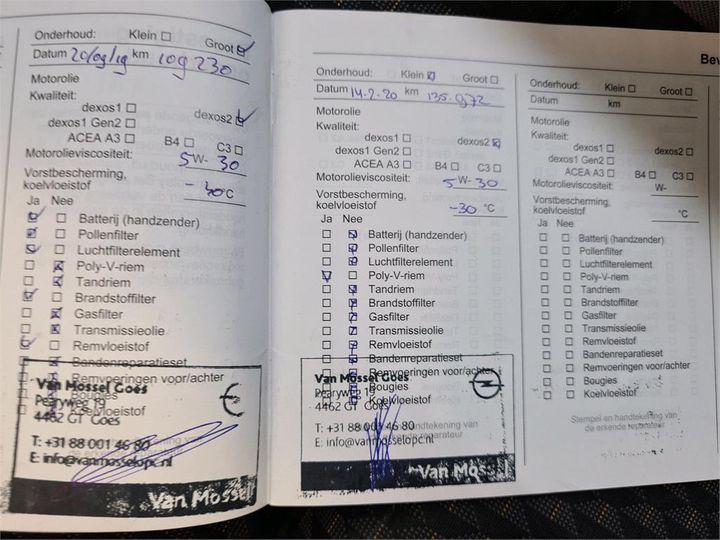 Onderhoud: Klein ☐ Groot ☑
Datum 20/09/19 km 109230
Motorolie
Kwaliteit:
dexos1 ☐ dexos2 ☑
dexos1 Gen2 ☐
ACEA A3 ☐ B4 ☐ C3 ☐
Motorolieviscositeit: 5W- 30
Vorstbescherming,
koelvloeistof -30°C
Ja Nee
☑ ☐ Batterij (handzender)
☑ ☐ Pollenfilter
☑ ☐ Luchtfilterelement
☐ ☑ Poly-V-riem
☐ ☑ Tandriem
☑ ☐ Brandstoffilter
☐ ☑ Gasfilter
☐ ☑ Transmissieolie
☑ ☐ Remvloeistof
Bandenreparatieset
Remvoeringen voor/achter
Bougies
Koelvloeistof
Van Mossel Goes
Pearyweg 19
4462 GT Goes
T: +31 88 001 46 80
E: info@vanmosselopc.nl
Van Mossel
Bev
Onderhoud: Klein ☑ Groot ☐
Datum 14-2-20 km 135.972
Motorolie
Kwaliteit:
dexos1 ☐ dexos2 ☑
dexos1 Gen2 ☐
ACEA A3 ☐ B4 ☐ C3 ☐
Motorolieviscositeit: 5W-30
Vorstbescherming,
koelvloeistof -30 °C
Ja Nee
☐ ☑ Batterij (handzender)
☐ ☑ Pollenfilter
☐ ☑ Luchtfilterelement
☑ ☐ Poly-V-riem
☐ ☑ Tandriem
☐ ☑ Brandstoffilter
☐ ☑ Gasfilter
☐ ☑ Transmissieolie
☐ ☑ Remvloeistof
☐ ☑ Bandenreparatieset
Remvoeringen voor/achter
Bougies
Koelvloeistof
Van Mossel Goes
Pearyweg 19
4462 GT Goes
T: +31 88 001 46 80
E: info@vanmosselopc.nl
Van Mossel
Onderhoud: Klein ☐ Groot ☐
Datum km
Motorolie
Kwaliteit:
dexos1 ☐ dexos2 ☐
dexos1 Gen2 ☐
ACEA A3 ☐ B4 ☐ C3 ☐
Motorolieviscositeit: W-
Vorstbescherming,
koelvloeistof °C
Ja Nee
☐ ☐ Batterij (handzender)
☐ ☐ Pollenfilter
☐ ☐ Luchtfilterelement
☐ ☐ Poly-V-riem
☐ ☐ Tandriem
☐ ☐ Brandstoffilter
☐ ☐ Gasfilter
☐ ☐ Transmissieolie
☐ ☐ Remvloeistof
☐ ☐ Bandenreparatieset
☐ ☐ Remvoeringen voor/achter
☐ ☐ Bougies
☐ ☐ Koelvloeistof
Stempel en handtekening van
de erkende reparateur